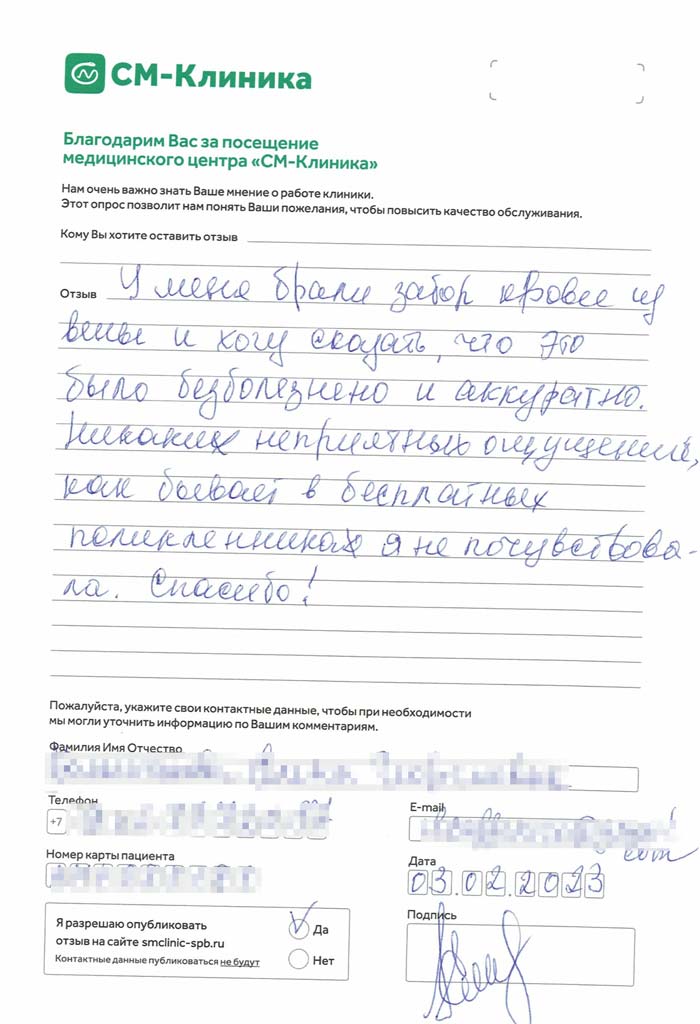 СМ-Клиника
Благодарим Вас за посещение
медицинского центра «СМ-Клиника»
Нам очень важно знать Ваше мнение о работе клиники.
Этот опрос позволит нам понять Ваши пожелания, чтобы повысить качество обслуживания.
Кому Вы хотите оставить отзыв
Отзыв У меня брали забор крове из
вены и хочу сказать, что это
было безболезнено и аккуратно.
Никаких неприятных ощущений,
как бывает в бесплатных
поликленниках я не почувствова-
ла. Спасибо!
Пожалуйста, укажите свои контактные данные, чтобы при необходимости
мы могли уточнить информацию по Вашим комментариям.
Фамилия Имя Отчество
Телефон
+7
E-mail
com
Номер карты пациента
Дата
03.02.2023
Я разрешаю опубликовать
отзыв на сайте smclinic-spb.ru
Контактные данные публиковаться не будут
Да
Нет
Подпись